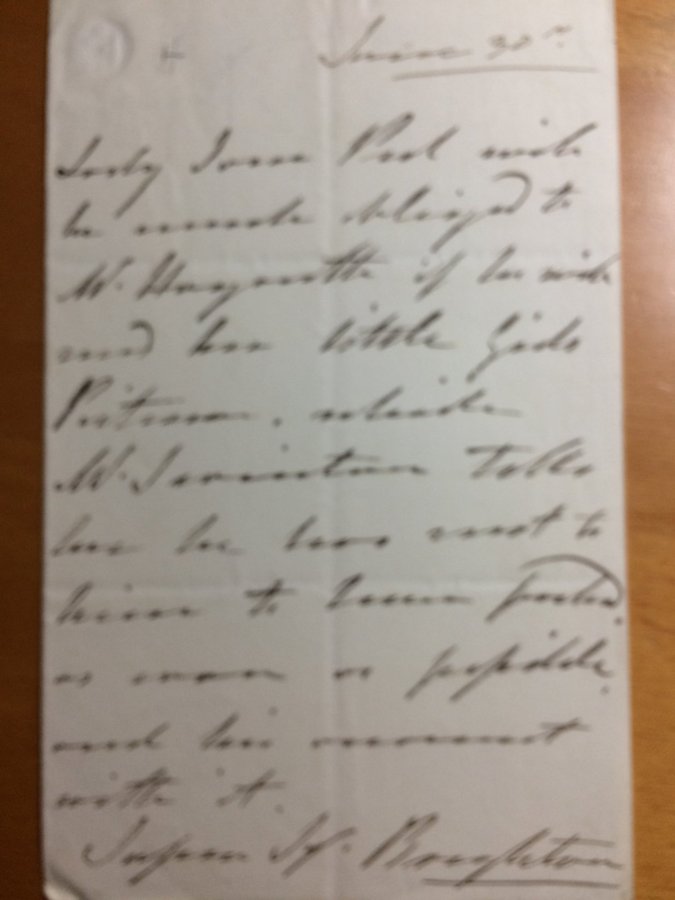 June 30th
Lady Jane Peel will
be much obliged to
Mr. if he will
send her little Girls
Picture. which
Mr. Swinton tells
her he has sent to
him to have
as soon as possible.
and his account
with it.
St. Brighton